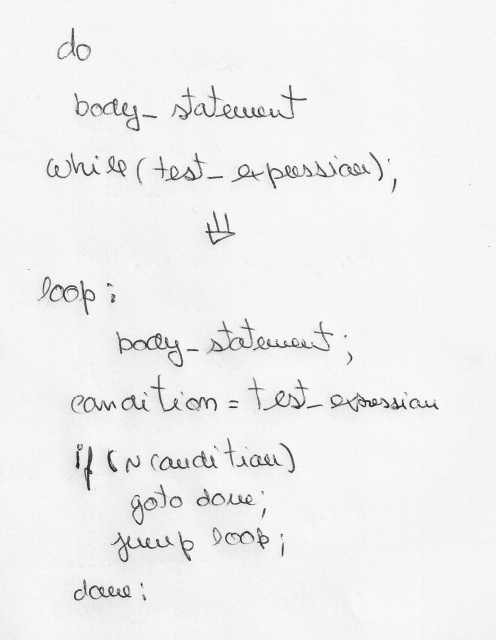 do
body_statement
while(test_expression);
loop:
body_statement;
condition = test_expression
if (~condition)
goto done;
jump loop;
done: